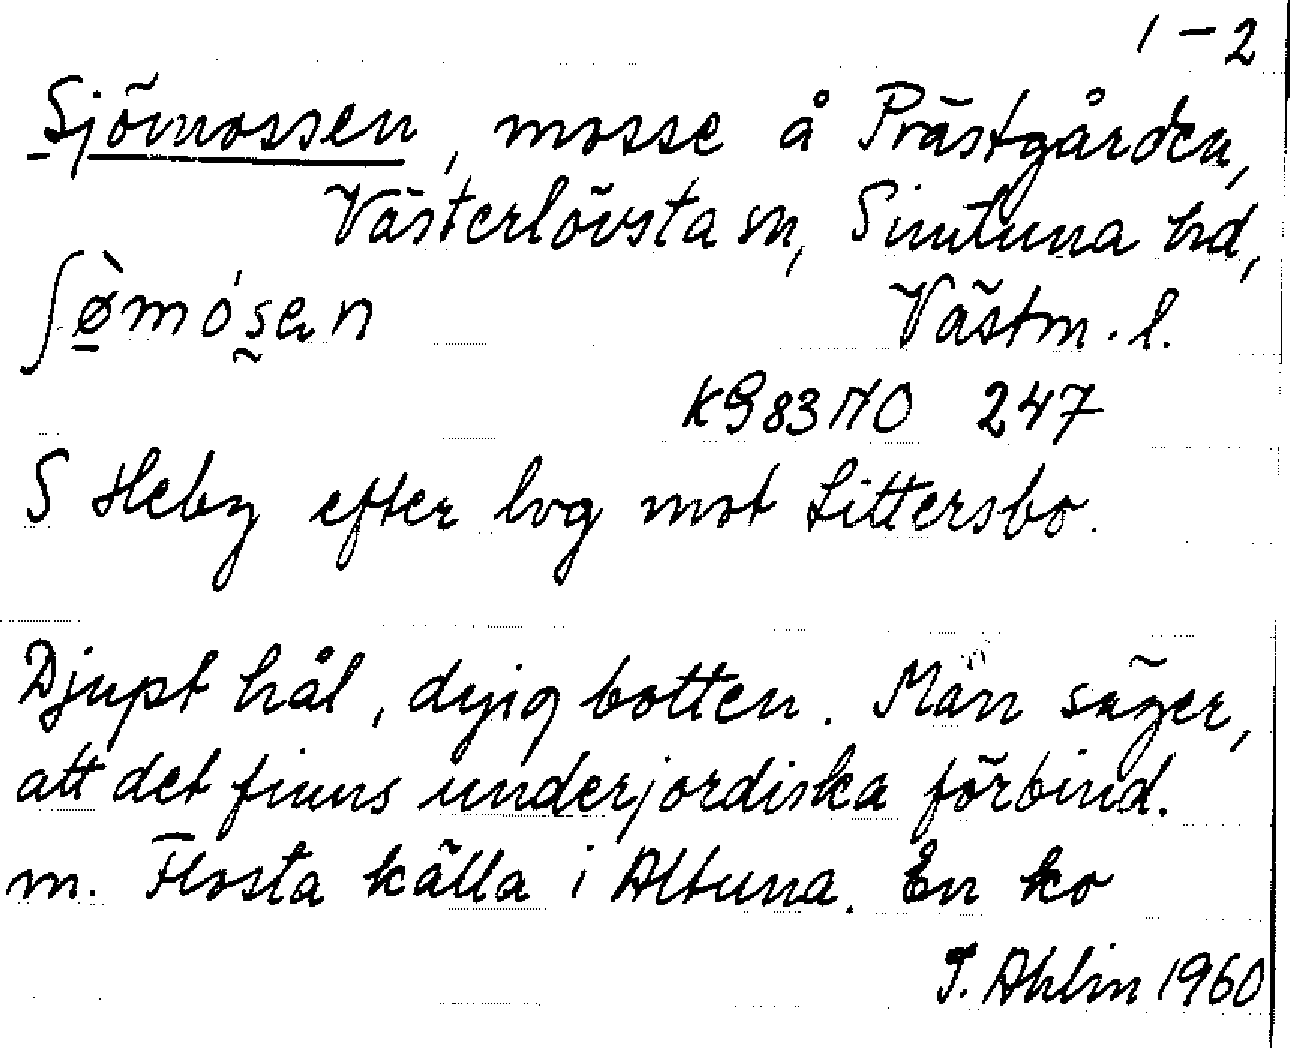 1-2
Sjömossen, mosse å Prästgården,
Västerlövsta sn, Simtuna hd,
ʃø̀mósen Västm. l.
KG 83 NO 247
S Heby efter lvg mot Littersbo.
Djupt hål, dyig botten. Man säger,
att det finns underjordiska förbind.
m. Flosta källa i Altuna. En ko
T. Ahlin 1960